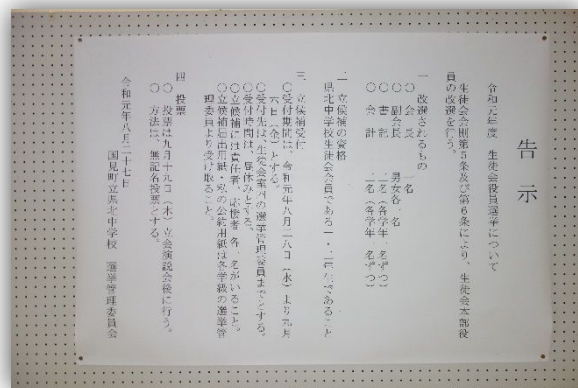 告示
令和元年度 生徒会役員選挙について
生徒会会則第5条及び第6条により、生徒会本部役
員の改選を行う。
一 改選されるもの
○ 会長 一名
○ 副会長 男女各一名
○ 書記 二名(各学年一名ずつ)
○ 会計 二名(各学年一名ずつ)
二 立候補の資格
県北中学校生徒会会員である一・二年生であること
三 立候補受付
○受付期間は、令和元年八月二八日(水)より九月
六日(金)とする。
○受付先は、生徒会室内の選挙管理委員までとする。
○受付時間は、昼休みとする。
○立候補には責任者、応援者各一名がいること。
○立候補届出用紙・私の公約用紙は各学級の選挙管
理委員より受け取ること。
四 投票
○ 投票は九月十九日(木)立会演説会後に行う。
○ 方法は、無記名投票とする。
令和元年八月二十七日
国見町立県北中学校 選挙管理委員会